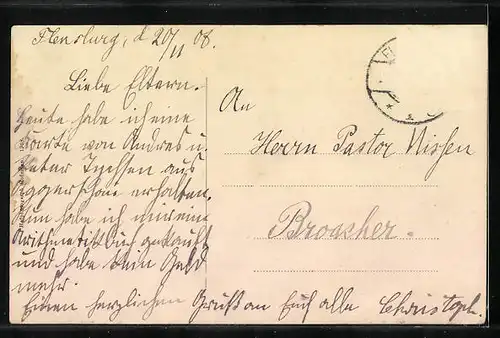 Flensburg, d 20/11 08.
Liebe Eltern.
Heute habe ich eine
Karte von Andres u.
Peter Tychsen aus
erhalten.
Nun habe ich mir eine
Arithmetik Buch gekauft
und habe kein Geld
mehr.
Einen herzlichen Gruß an Euch alle Christoph.
An
Herrn Pastor Nissen
Broacker.